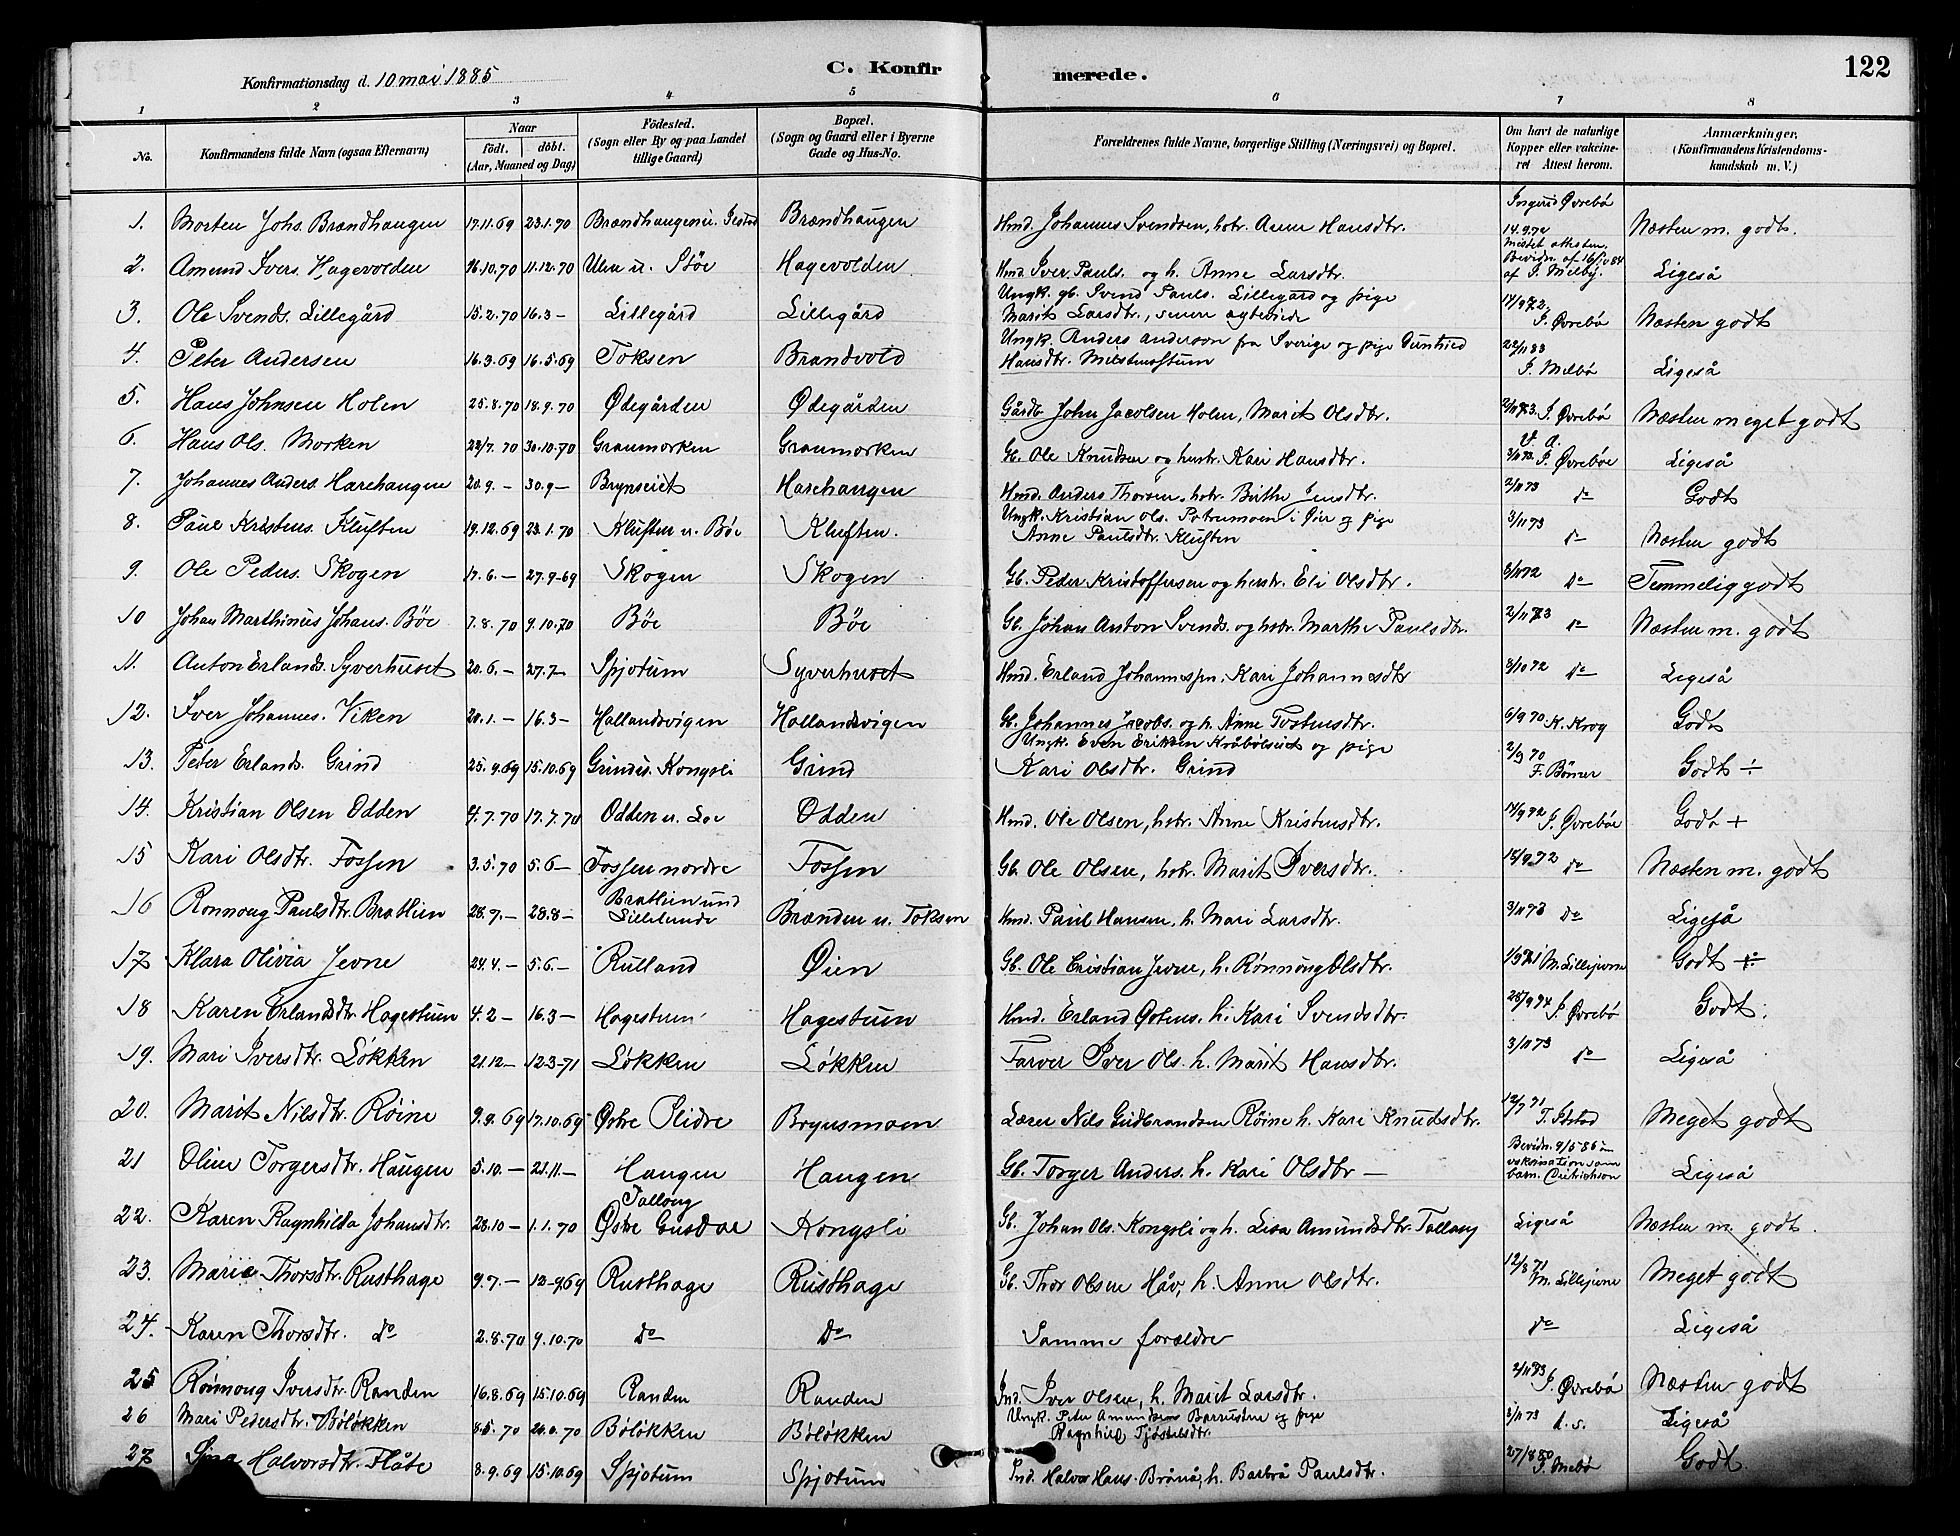 Konfirmationsdag d. 10 mai 1885
C. Konfirmerede.
122
1 2 3 4 5 6 7 8
No. Konfirmandens fulde Navn (ogsaa Efternavn) Naar födt. döbt. (Aar, Maaned og Dag) Födested. (Sogn eller By og paa Landet tillige Gaard) Bopæl. (Sogn og Gaard eller i Byerne Gade og Hus-No. Forældrenes fulde Navne, borgerlige Stilling (Næringsvei) og Bopæl. Om havt de naturlige Kopper eller vakcineret Attest herom. Anmærkninger, (Konfirmandens Kristendomskundskab m. V.)
1. Morten Johs. Brændhaugen 17.11.69 23.1.70 Brændhaugen u. Brændhaugen Hmd. Johannes Svendsen, hstr. Anne Hansdtr. Ingerid Øvrebø 14.9.72 Næsten m. godt.
2. Amund Ivers. Hagevolden 16.10.70 11.12.70 Ulen u. Støe Hagevolden Hmd. Iver Pauls. og h. Anne Larsdtr. Mistet attesten. Bevidn. af 16/10 84 af J. Melbÿ. Ligeså
3. Ole Svends. Lillegård 15.2.70 16.3- Lillegård Lillegård Ungk. gb. Svend Pauls. Lillegård og pige Marit Larsdtr., senere 14/9 72. J. Øvrebø Næsten godt
4. Peter Andersen 16.3.69 16.5.69 Toksen Brandvold Ungk. Anders Anderson fra Sverige og pige Hansdtr. 22/11 83 J. Melbø Ligeså
5. Hans Johnsen Holen 25.8.70 18.9.70 Ødegården Ødegården Gårdb. John Jacobsen Holen, Marit Olsdtr. 2/11 73. J. Øvrebø Næsten meget godt
6. Hans Ols. Morken 22/7. 70 30.10.70 Granmorken Granmorken Gb. Ole Knudsen og hustr. Kari Hansdtr. 3/11 73. J. Øvrebøe Ligeså
7. Johannes Anders. Harehaugen 20.9.- 30.9- Brynseiet Harehaugen Hmd. Anders Thorsen, hstr. Birthe Jensdtr. 2/11 73 do Godt
8. Paul Kristens. Kluften 19.12.69 23.1.70 Kluften u. Bøe Kluften. Ungk. Kristian Ols. i Øier og pige Anne Paulsdtr. Kluften 3/11 73 do Næsten godt
9. Ole Peders. Skogen 17.6.- 27.9-69 Skogen Skogen Gb. Peder Kristoffersen og hustr. Eli Olsdtr. 3/11 72 do Temmelig godt
10 Johan Marthinus Johans. Bøe 7.8.70 9.10.70 Bøe Bøe Gb. Johan Anton Svends. og hstr. Marthe Paulsdtr. 2/11 73 do Næsten m. godt
11. Anton Erlands. Syverhuset 20.6.- 27.7- Spjotum Syverhuset Hmd. Erland Johannessen, Kari Johannesdtr 3/10 72 do Ligeså
12. Iver Johannes. Viken 20.1.- 16.3- Hollandsvigen Hollandsvigen Gb. Johannes Jacobs. og h. Anne Tostensdtr. 6/9 70 K. Krog Godt
13. Peter Erlands. Grind 25.9.69 15.10.69 Grind u. Kongsli Grind Ungk. Even Eriksen og pige Kari Olsdtr. Grind 2/9 70 F. Bömer Godt ÷
14. Kristian Olsen Odden 4.7.70 17.7.70 Odden u. Loe Odden Hmd. Ole Olsen, hstr. Anne Kristensdtr. 14/9 72 J. Øvrebøe Godt +
15 Kari Olsdtr. Fossen 3.5.70 5.6- Fossen nordre Fossen Gb. Ole Olsen, hstr. Marit Iversdtr. 18/9 72 do Næsten m. godt
16 Rønnoug Paulsdtr. Bratlien 28.7.- 28.8- Bratlien und Lillelunde Brænden u. Toksen Hmd. Paul Hansen, h. Mari Larsdtr. 3/11 73 do Ligeså
17 Klara Olivia Jevne 24.4.- 5.6- Rulland Øien Gb. Ole Cristian Jevne, h. Rønnoug Olsdtr. 1/9 71 M. Lillejevne Godt ÷
18 Karen Erlandsdtr. Hagestuen 4.2- 16.3- Hagestuen Hagestuen Hmd. Erland Ostens. h. Kari Svendsdtr. 25/9 74 J. Øvrebø Godt.
19. Mari Iversdtr. Løkken 21.12- 12.3-71 Løkken Løkken Farver Iver Ols. h. Marit Hansdtr. 3/11 73 do Ligeså
20. Marit Nilsdtr. Røine 9.9.69 17.10.69 Østre Slidre Brynsmoen Lærer Nils Gudbrandsen Røine h. Kari Knudsdtr. 12/7 71 Meget godt
21 Oline Torgersdtr. Haugen 5.10.- 21.11- Haugen Haugen Gb. Torger Anders. h. Kari Olsdtr - Bevidn. 9/5 86 om vakcination som barn. Ligeså
22. Karen Ragnhilda Johansdtr. 28.10- 1.1.70 Tallaug Østre Gusdal Kongsli Gb. Johan Ols. Kongsli og h. Lisa Amundsdtr. Tallaug Ligeså Næsten m. godt.
23. Marie Thorsdtr. Rusthage 9.7.- 12-9.69 Rusthage Rusthage Gb. Thor Olsen Håv, h. Anne Olsdtr. 12/8 71 M. Lillejevne Meget godt
24. Karen Thorsdtr. do 2.8.70 9.10.70 do do Samme forældre do Ligeså
25 Rønnoug Iversdtr. Randen 16.8.69 15.10.69 Randen Randen Ind. Iver Olsen, h. Marit Larsdtr. 2/11 83 J. Øvrebø Næsten godt
26 Mari Pedersdtr. Böløkken 8.5.70 Böløkken Böløkken Ungk. Peter Amundsen og pige Ragnhild 3/11 73 d.s. Ligeså
27 Halvorsdtr. Flåte 8.9.69 15.10.69 Spjotum Spjotum Ind. Halvor Hans. Brånå, h. Barbra Paulsdtr. 27/8 80 J. Mebø Godt.